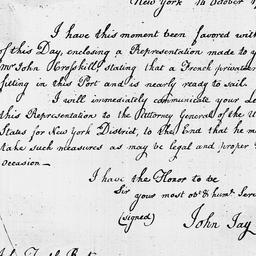 New York 16 October
I have this moment been favored with
of this Day, enclosing a Representation made to y
Mr John Crosskill, stating that a French privateer
fitting in this Port and is nearly ready to sail.
I will immediately communicate your Le
this Representation to the Attorney General of the U
States for New York District, to the End that he m
take such measures as may be legal and proper
occasion—
I have the Honor to be
Sir
your most obt & humt Serv
(signed)
John Jay